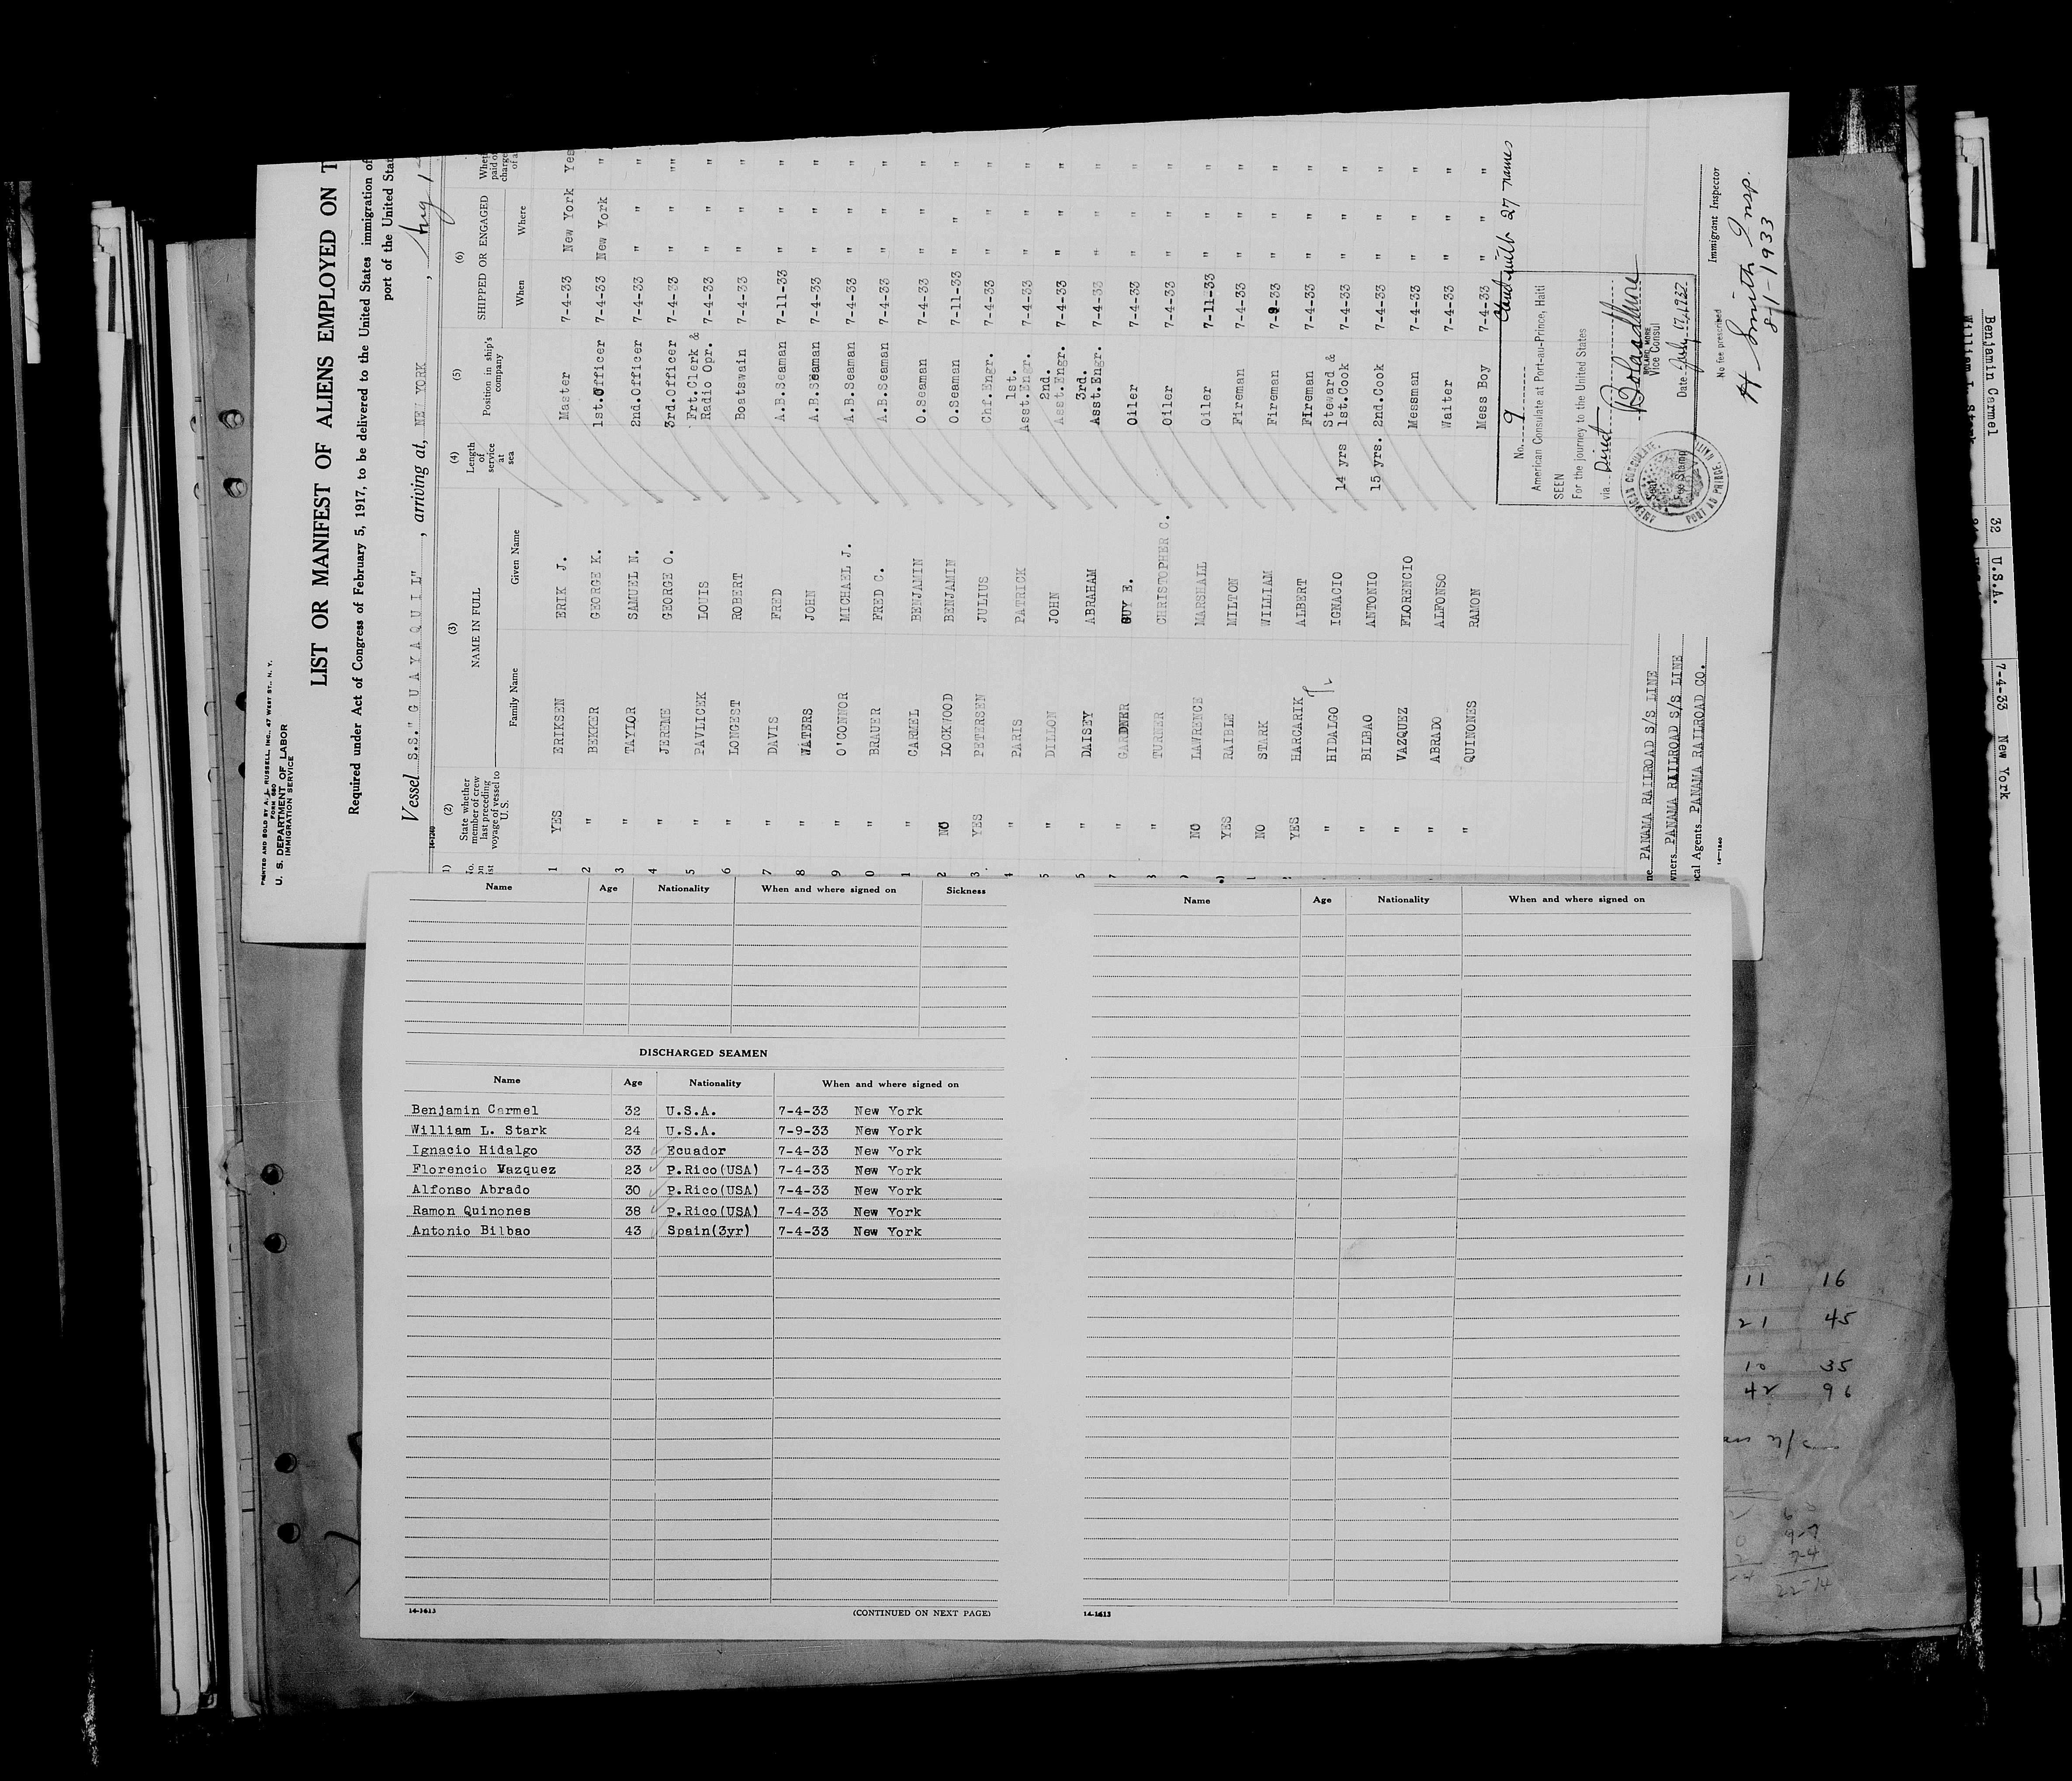 PRINTED AND SOLD BY A. J. RUSSELL, INC., 47 WEST ST., N. Y.
FORM 680
U. S. DEPARTMENT OF LABOR
IMMIGRATION SERVICE
LIST OR MANIFEST OF ALIENS EMPLOYED ON T
Required under Act of Congress of February 5, 1917, to be delivered to the United States immigration of
port of the United Stat
Vessel S.S." G U A Y A Q U I L" , arriving at, NEW YORK , Aug 1
14-1240
(2) (3) (4) (5) (6)
State whether member of crew last preceding voyage of vessel to U.S. NAME IN FULL Length of service at sea Position in ship's company SHIPPED OR ENGAGED
Family Name Given Name When Where
1 YES ERIKSEN ERIK J. Master 7-4-33 New York Yes
2 " BEKKER GEORGE K. 1st.Officer 7-4-33 New York "
3 " TAYLOR SAMUEL N. 2nd.Officer 7-4-33 " " "
4 " JEREME GEORGE O. 3rd.Officer 7-4-33 " " ""
5 " PAVLICEK LOUIS Frt.Clerk & Radio Opr. 7-4-33 " " "
6 " LONGEST ROBERT Boatswain 7-4-33 " " "
7 " DAVIS FRED A.B.Seaman 7-11-33 " " "
8 " WATERS JOHN A.B.Seaman 7-4-33 " " "
9 " O'CONNOR MICHAEL J. A.B.Seaman 7-4-33 " " "
0 " BRAUER FRED C. A.B.Seaman 7-4-33 " " "
1 " CARMEL BENJAMIN O.Seaman 7-4-33 " " "
2 NO LOCKWOOD BENJAMIN O.Seaman 7-11-33 " " "
3 YES PETERSEN JULIUS Chf.Engr. 7-4-33 " " "
4 " PARIS PATRICK 1st. Asst.Engr. 7-4-33 " " "
5 " DILLON JOHN 2nd. Asst.Engr. 7-4-33 " " "
" DAISEY ABRAHAM 3rd. Asst.Engr. 7-4-33 " " "
7 " GARDNER GUY E. Oiler 7-4-33 " " "
" TURNER CHRISTOPHER C. Oiler 7-4-33 " " "
NO LAWRENCE MARSHALL Oiler 7-11-33 " " "
YES RAIBLE MILTON Fireman 7-4-33 " " "
NO STARK WILLIAM Fireman 7-9-33 " " "
YES HARCARIK ALBERT Fireman 7-4-33 " " "
" HIDALGO IGNACIO 14 yrs Steward & 1st.Cook 7-4-33 " " "
" BILBAO ANTONIO 15 yrs. 2nd.Cook 7-4-33 " " "
" VAZQUEZ FLORENCIO Messman 7-4-33 " " "
" ABRADO ALFONSO Waiter 7-4-33 " " "
" QUINONES RAMON Mess Boy 7-4-33 " " "
27 names
No. 9
American Consulate at Port-au-Prince, Haiti
SEEN
For the journey to the United States
via Direct
Vice Consul
Date
No fee prescribed
AMERICAN CONSULATE.
Fee Stamp
PORT AU PRINCE.
Immigrant Inspector
H Smith Insp.
8/1-1933
PANAMA RAILROAD S/S LINE
wners PANAMA RAILROAD S/S LINE
cal Agents PANAMA RAILROAD CO.
14-1240
Name Age Nationality When and where signed on Sickness
DISCHARGED SEAMEN
Name Age Nationality When and where signed on
Benjamin Carmel 32 U.S.A. 7-4-33 New York
William L. Stark 24 U.S.A. 7-9-33 New York
Ignacio Hidalgo 33 Ecuador 7-4-33 New York
Florencio Vazquez 23 P.Rico(USA) 7-4-33 New York
Alfonso Abrado 30 P.Rico(USA) 7-4-33 New York
Ramon Quinones 38 P.Rico(USA) 7-4-33 New York
Antonio Bilbao 43 Spain(3yr) 7-4-33 New York
14-1613 (CONTINUED ON NEXT PAGE)
Name Age Nationality When and where signed on
14-1613
Benjamin Carmel 32 U.S.A. 7-4-33 New York
William L. Stark
11 16
21 45
10 35
42 96